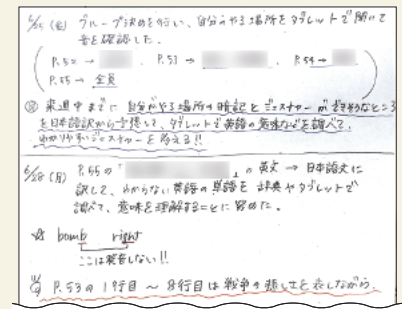 6/25 (金) グループ決めを行い、自分のやる場所をタブレットで聞いて
音を確認した。
P.52 → 　P.53 → 　P.54 →
P.55 → 全員
来週中までに 自分がやる場所の暗記とジェスチャーができそうなところ
を日本語訳から予想して、タブレットで英語の意味などを調べて、
わかりやすいジェスチャーを考える!!
6/28 (月) P.55の「　」の英文 → 日本語文に
訳して、わからない英語の単語を辞典やタブレットで
調べて、意味を理解することに努めた。
☆ bomb right
ここは発音しない!!
P.53の1行目～8行目は戦争の悲しさを表しながら、